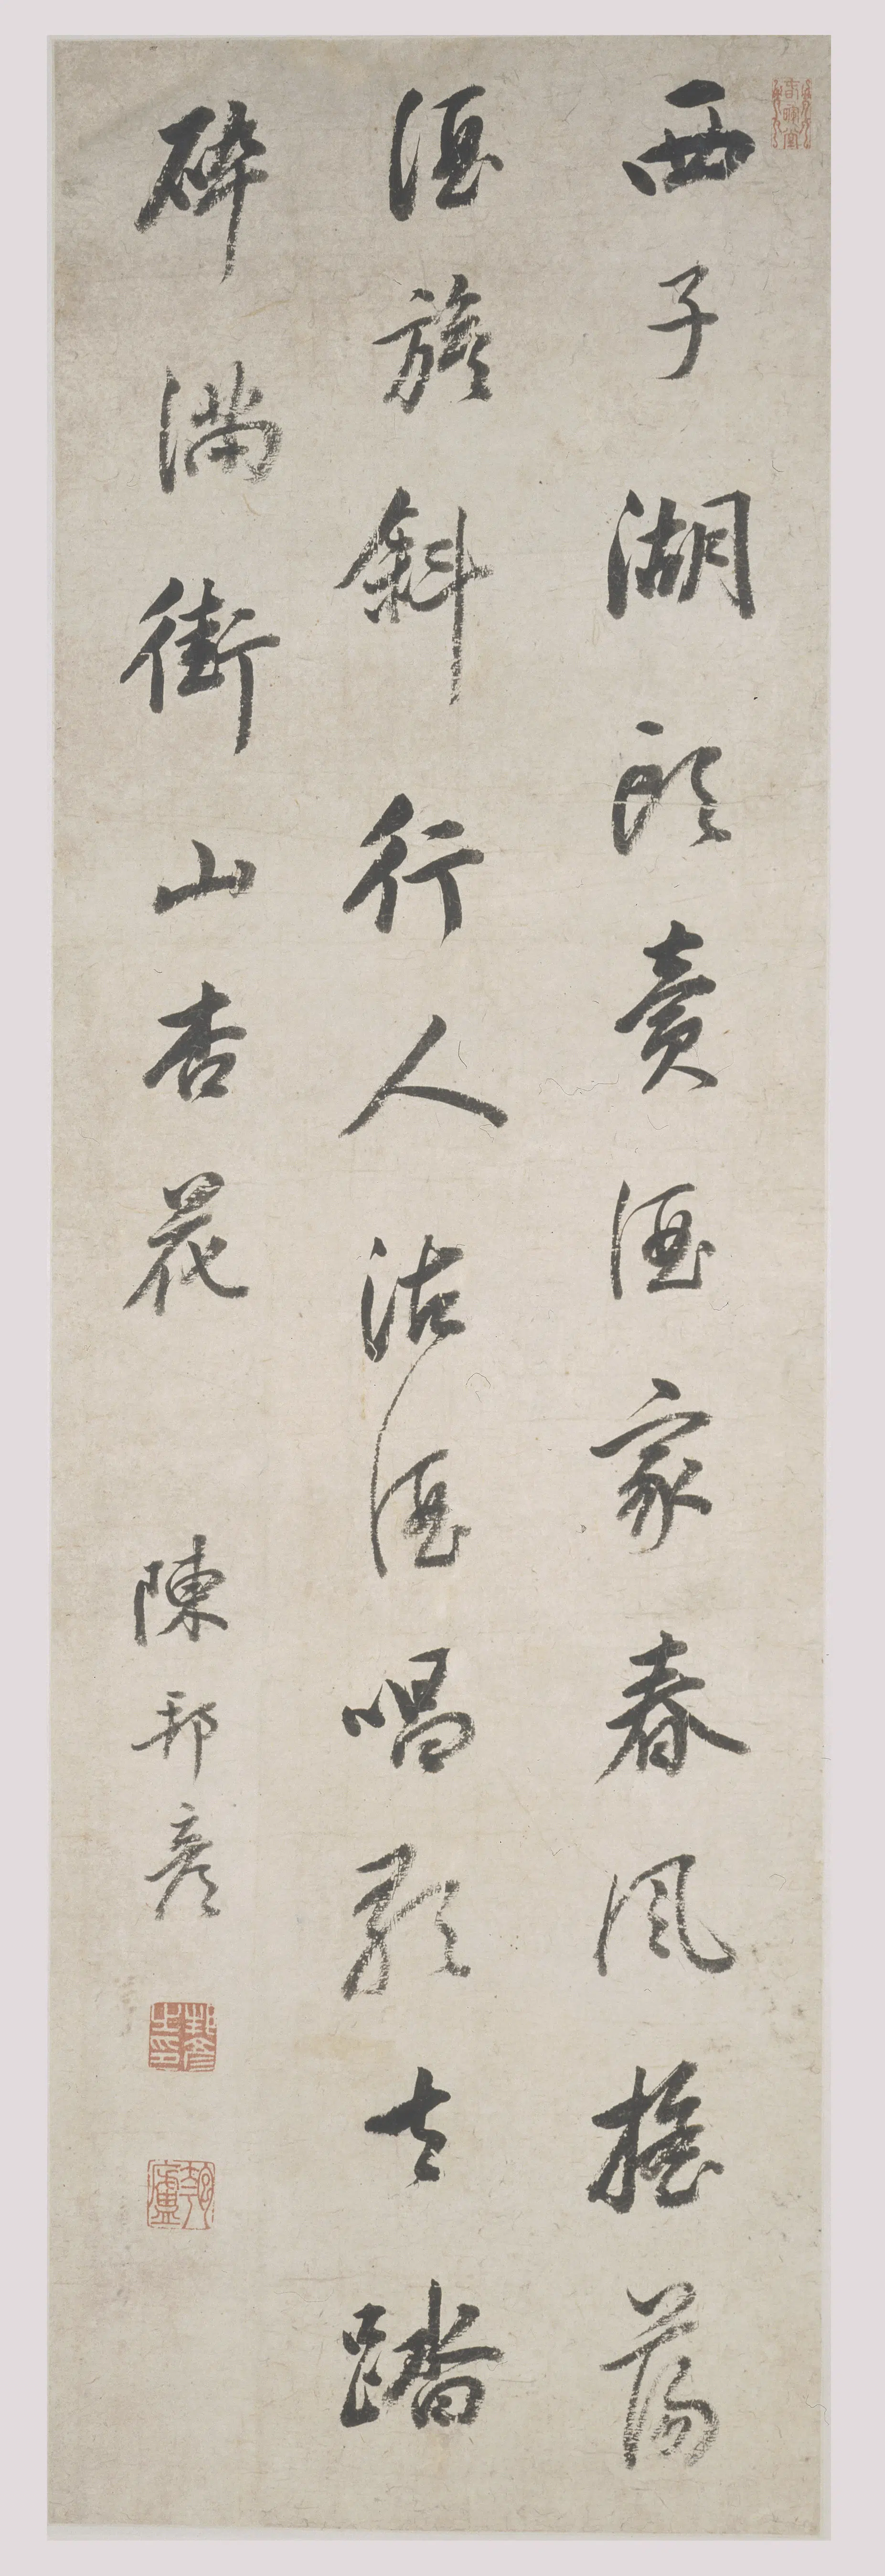 西子湖頭賣酒家春風搖蕩
酒旗斜行人沽酒唱歌去踏
碎滿街山杏花
陳邦彥
邦彥之印